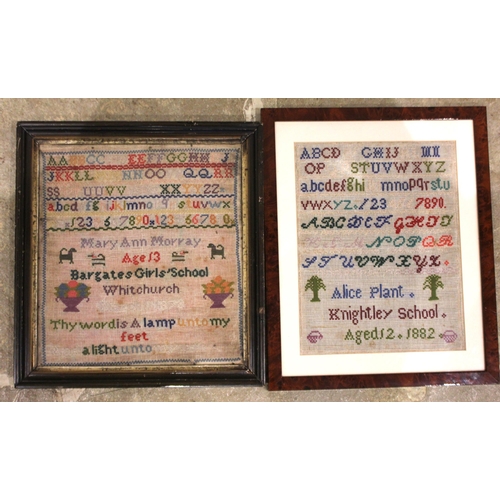 AABBCC EEFFGGHH J
JKKLL NNOO QQRR
SS UUVV XXYYZZ
abcd fg ijklmno q stuvwx
Mary Ann Morray
Age 13
Bargates Girls' School
Whitchurch
Thy word is A lamp unto my
feet
a light unto
ABCD GHIJ
OP STUVWXYZ
abcdefghi mnopqrstu
vwxyz. 123 7890.
ABCDEF GHIJ
NOPQR
STUVWXYZ.
Alice Plant.
Knightley School.
Aged 12. 1882.